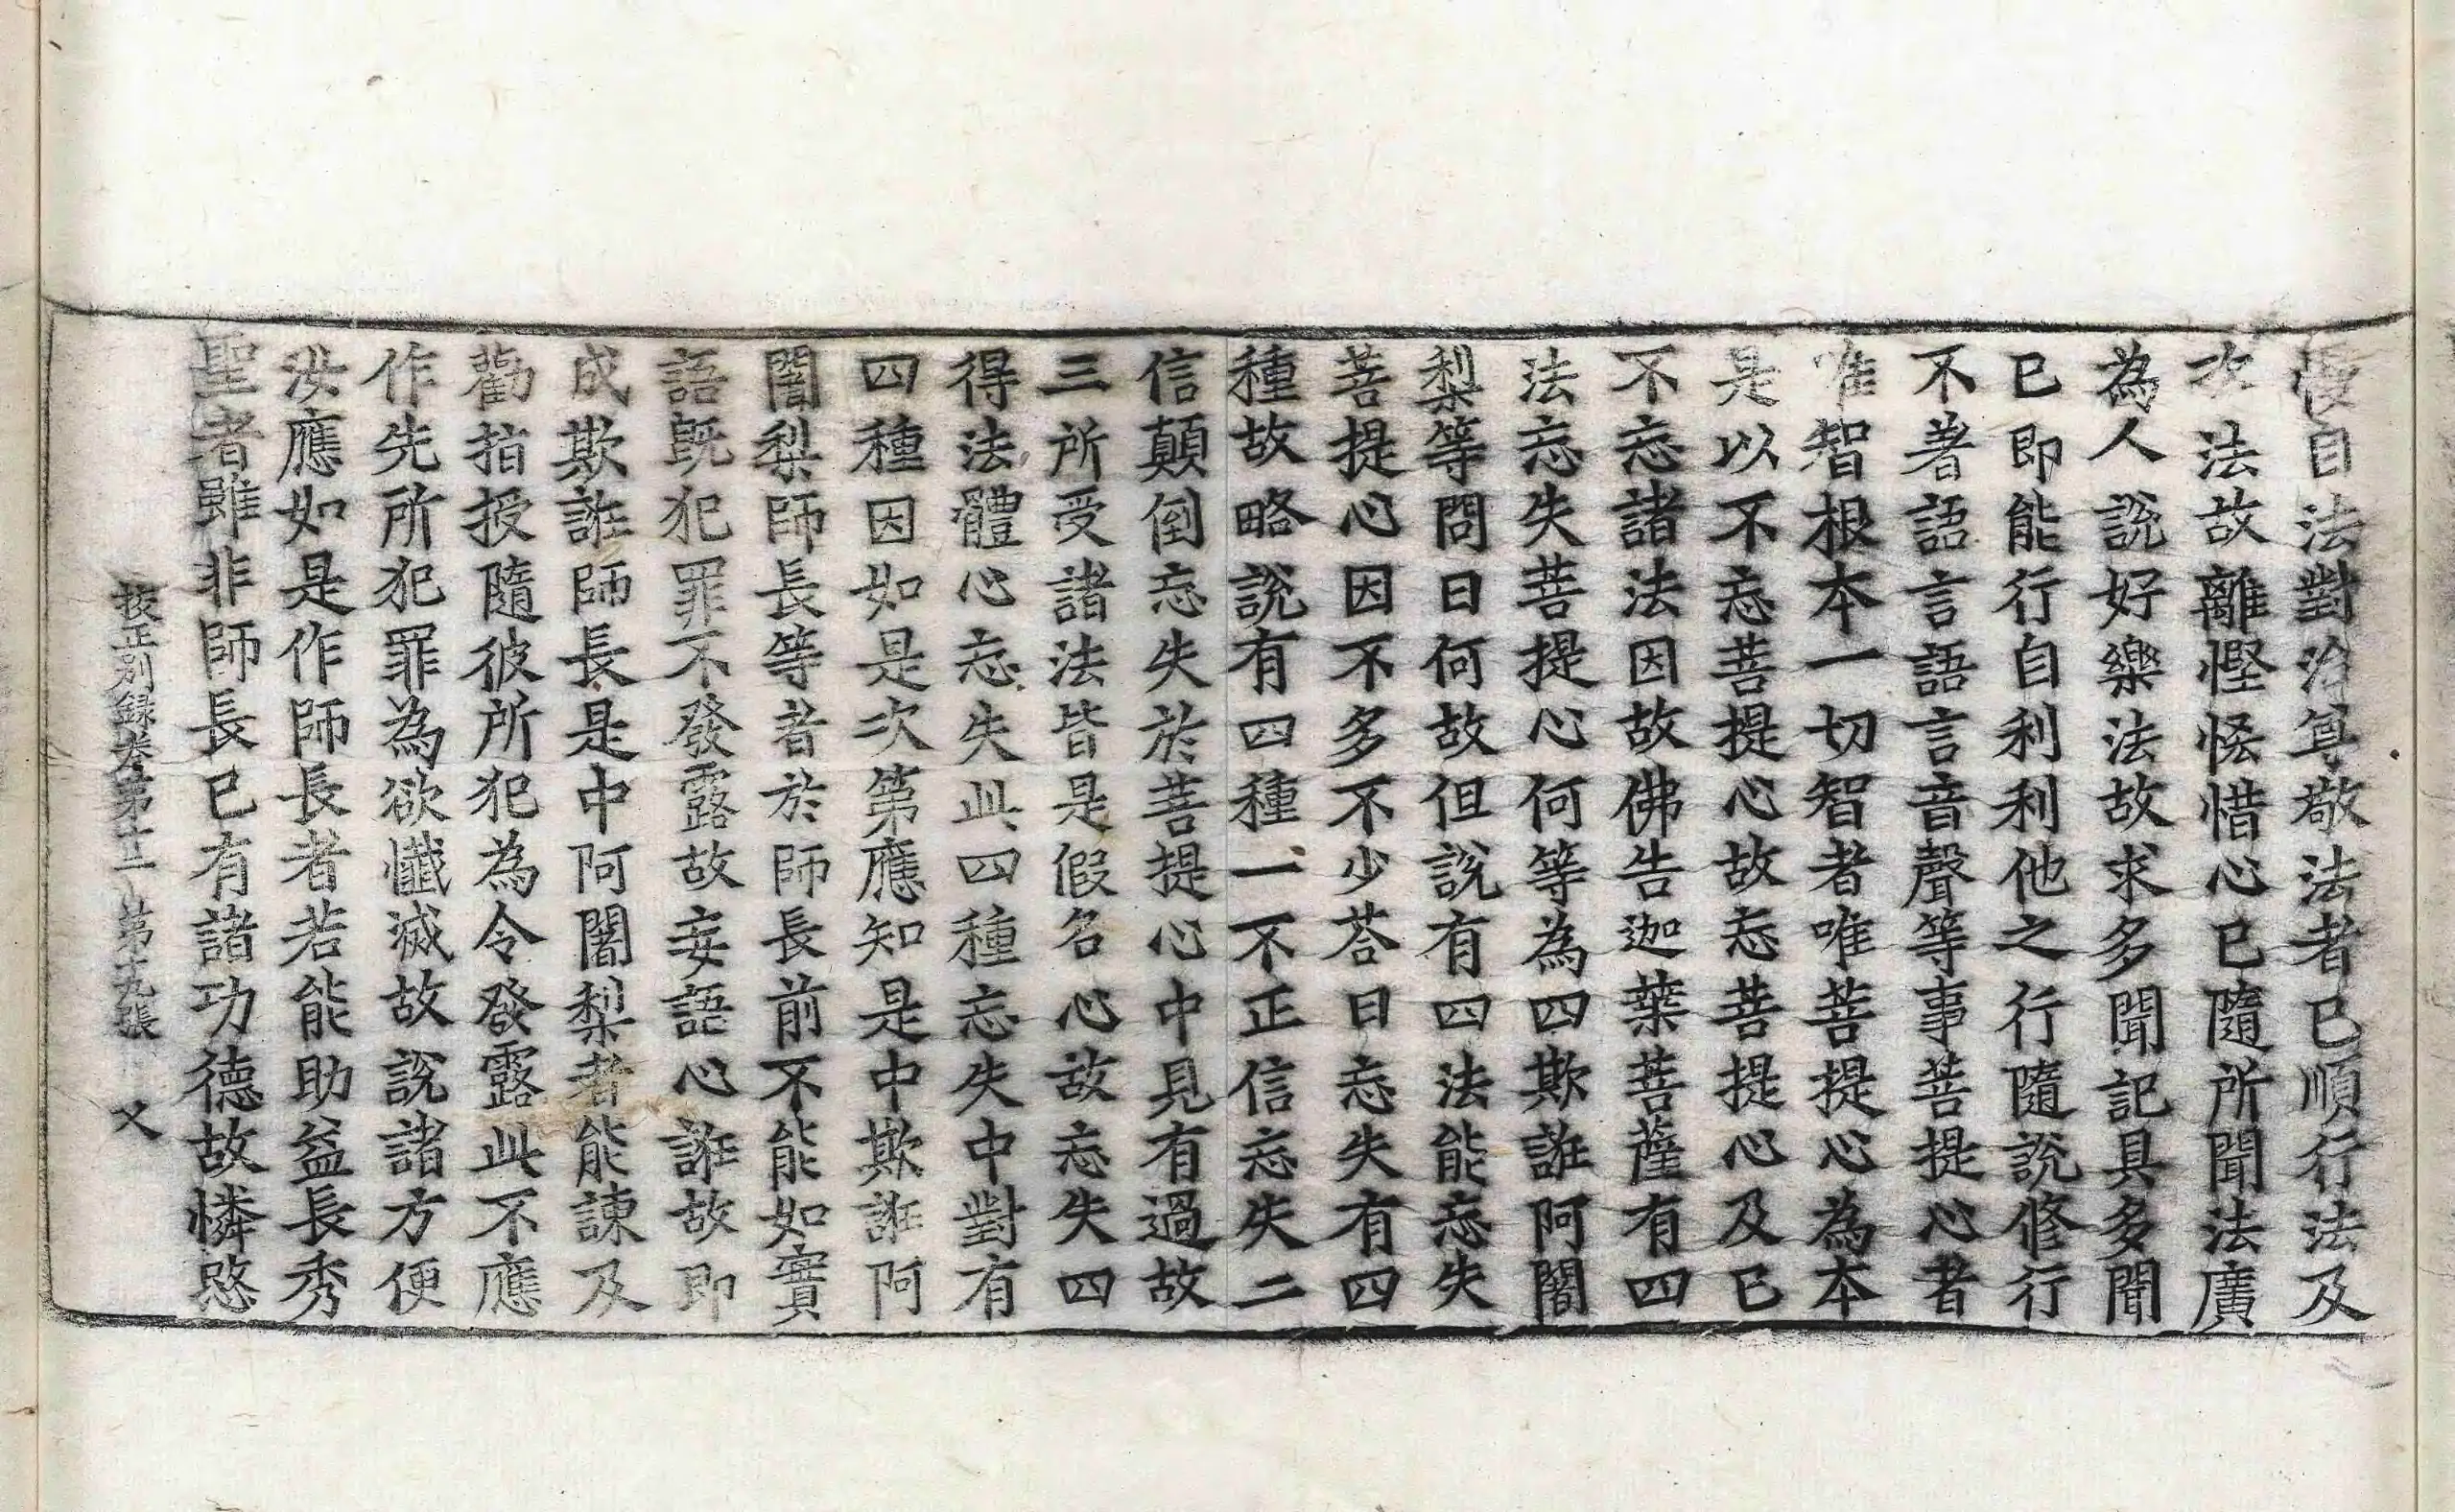 憂自法對治尊敬法者已順行法及
次法故離慳悋惜心已隨所聞法廣
為人說好樂法故求多聞記具多聞
已即能行自利利他之行隨說修行
不著語言語言音聲等事菩提心者
唯智根本一切智者唯菩提心為本
是以不忘菩提心故忘菩提心及已
不忘諸法因故佛告迦葉菩薩有四
法忘失菩提心何等為四欺誑阿闍
梨等問曰何故但說有四法能忘失
菩提心因不多不少荅曰忘失有四
種故略說有四種一不正信忘失二
信顛倒忘失於菩提心中見有過故
三所受諸法皆是假名心故忘失四
得法體心忘失此四種忘失中對有
四種因如是次第應知是中欺誑阿
闍梨師長等者於師長前不能如實
語旣犯罪不發露故妄語心誑故即
成欺誑師長是中阿闍梨者能諫及
勸指授隨彼所犯為令發露此不應
作先所犯罪為欲懺滅故說諸方便
汝應如是作師長者若能助益長秀
聖者雖非師長已有諸功德故憐愍
挍正別録卷第十二 第十九張 义